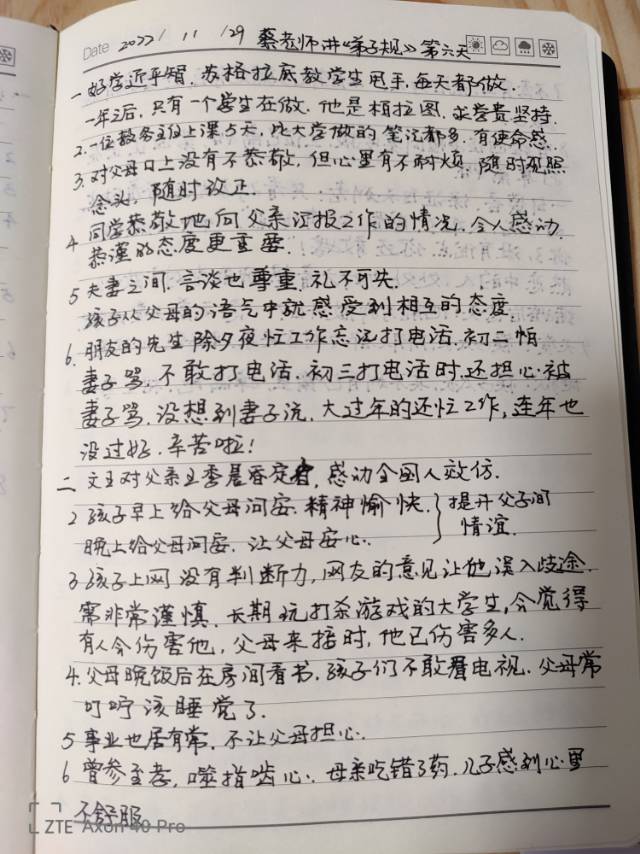 Date 2022/11/29 蔡老师讲《弟子规》第六天
一 好学近乎智. 苏格拉底教学生甩手, 每天都做.
一年之后, 只有一个学生在做. 他是柏拉图. 求学贵坚持.
2. 一位教务主任上课5天, 比大学做的笔记都多. 有使命感.
3. 对父母口上没有不恭敬, 但心里有不耐烦. 随时观照
念头, 随时改正.
4 同学恭敬地向父亲汇报工作的情况, 令人感动.
恭谨的态度更重要.
5 夫妻之间, 言谈也尊重, 礼不可失.
孩子从父母的语气中就感受到相互的态度.
6. 朋友的先生除夕夜忙工作忘记打电话. 初二怕
妻子骂, 不敢打电话. 初三打电话时, 还担心被
妻子骂, 没想到妻子说, 大过年的还忙工作, 连年也
没过好. 辛苦啦!
二 文王对父亲王季晨昏定省, 感动全国人效仿.
2 孩子早上给父母问安. 精神愉快. } 提升父子间
晚上给父母问安, 让父母安心. 情谊.
3 孩子上网没有判断力, 网友的意见让他误入歧途.
需非常谨慎. 长期玩打杀游戏的大学生, 会觉得
有人会伤害他, 父母来接时, 他已伤害多人.
4. 父母晚饭后在房间看书. 孩子们不敢看电视. 父母常
叮咛该睡觉了.
5 事业也居有常, 不让父母担心.
6 曾参至孝, 啮指啮心. 母亲吃错了药. 儿子感到心里
不舒服
ZTE Axon 40 Pro